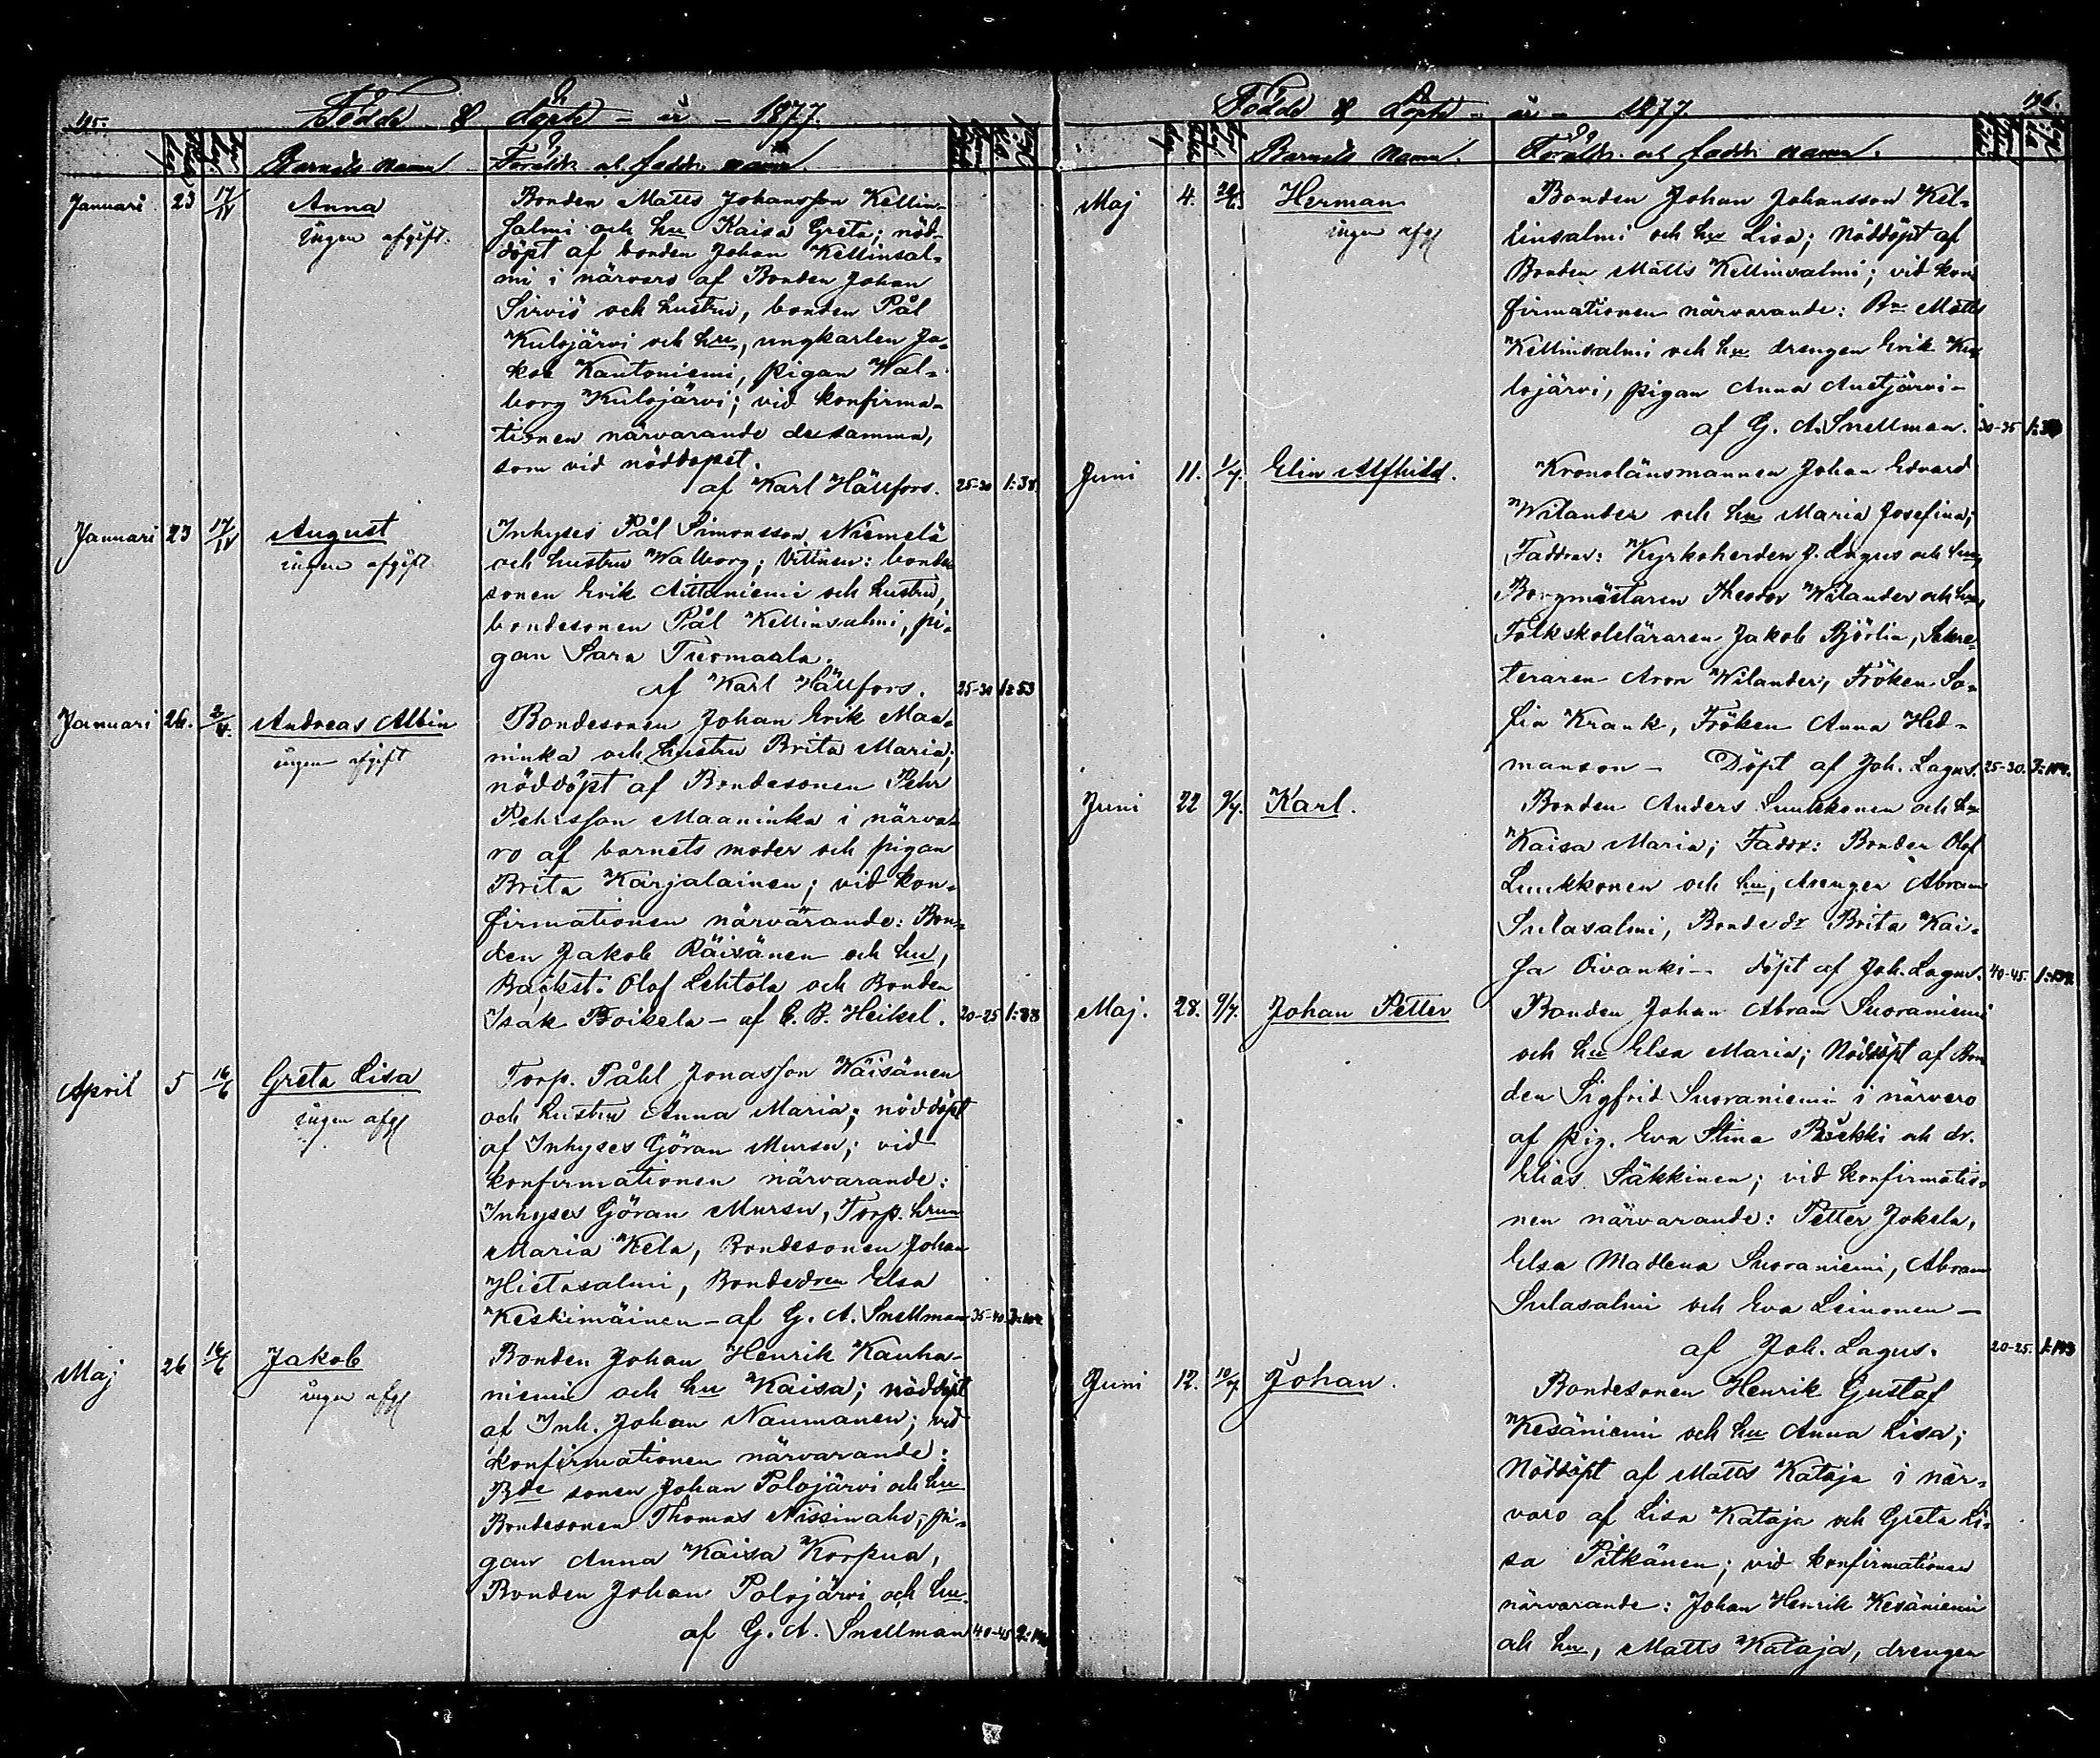 195.
Födde & döpte - år - 1877.
Barnets namn Föräldr. och faddr. namn.
Januari 23 17/IV Anna Bonden Matts Johansson Kellin-
ingen afgift. salmi och hu Kaisa Greta; nöd-
döpt af bonden Johan Kellinsal-
mi i närvaro af Bonden Johan
Sirviö och hustru, bonden Pål
Kulojärvi och hu, ungkarlen Ja-
kob Kantoniemi, pigan Wal-
borg Kulojärvi; vid konfirma-
tionen närvarande desamma,
som vid nöddopet.
af Karl Hällfors. 25-30 1:38.
Januari 23 17/IV August Inhyses Pål Simonsson Niemelä
ingen afgift och hustru Walborg; Vittnen: bonde
sonen Erik Aittaniemi och hustru,
bondesonen Pål Kellinsalmi, pi-
gan Sara Tuomaala.
af Karl Hällfors. 25-30 1:53
Januari 26. Andreas Albin Bondesonen Johan Erik Maa-
ingen afgift ninka och hustru Brita Maria;
nöddöpt af Bondesonen Pehr
Pehrsson Maaninka i närva-
ro af barnets moder och pigan
Brita Karjalainen; vid kon-
firmationen närvarande: Bon-
den Jakob Räisänen och hu,
Backst. Olof Lehtola och Bonden
Isak Poikela - af C. B. Heikel. 20-25 1:88
April 5 16/6 Greta Lisa Torp. Påhl Jonasson Wäisänen
ingen afg och hustru Anna Maria; nöddöpt
af Inhyses Göran Mursu; vid
konfirmationen närvarande:
Inhyses Göran Mursu, Torp. hrun
Maria Kela, Bondesonen Johan
Hietasalmi, Bondedren Elsa
Keskimäinen - af G. A. Snellman 35-40
Maj 26 16/6 Jakob Bonden Johan Henrik Kauha-
ingen afg niemi och hu Kaisa; nöddöpt
af Inh. Johan Naumanen; vid
konfirmationen närvarande:
Bde sonen Johan Polojärvi och hu
Bondesonen Thomas Nissinaho, pi-
gan Anna Kaisa Korpua,
Bonden Johan Polojärvi och hu.
af G. A. Snellman 40-45
196.
Födde & döpte - år - 1877.
Barnets namn. Föräldr. och faddr. namn.
Maj 4. Herman Bonden Johan Johansson Kel-
ingen afg linsalmi och hu Lisa; Nöddöpt af
Bonden Matts Kellinsalmi; vid kon
firmationen närvarande: Bn Matts
Kellinsalmi och hu drengen Erik Ku
lojärvi, pigan Anna Autjärvi-
af G. A. Snellman. 30-35
Juni 11. 1/7. Elin Alfhild. Kronolänsmannen Johan Edvard
Wilander och hu Maria Josefina;
Faddrar: Kyrkoherden J. Lagus och hu,
Borgmästaren Theodor Wilander och hu,
Folkskoleläraren Jakob Björlin, Sekre-
teraren Aron Wilander, Fröken So-
fia Krank, Fröken Anna Hed-
manson - Döpt af Joh. Lagus. 25-30.
Juni 22 9/7. Karl. Bonden Anders Luukkonen och hu
Kaisa Maria; Faddr: Bonden Olof
Luukkonen och hu, drengen Abram
Sulasalmi, Bonde dr Brita Kai-
sa Oivanki - döpt af Joh. Lagus. 40-45.
Maj. 28. 9/7. Johan Petter Bonden Johan Abram Suoraniemi
och hu Elsa Maria; Nöddöpt af Bon
den Sigfrid Suoraniemi i närvaro
af pig. Eva Stina och dr.
Elias Säkkinen; vid konfirmatio-
nen närvarande: Petter Jokela,
Elsa Madlena Suoraniemi, Abram
Sulasalmi och Eva Leinonen -
af Joh. Lagus. 20-25.
Juni 12. 10/7 Johan. Bondesonen Henrik Gustaf
Kesäniemi och hu Anna Lisa;
Nöddöpt af Matts Kataja i när-
varo af Lisa Kataja och Greta Li-
sa Pitkänen; vid konfirmationen
närvarande: Johan Henrik Kesäniemi
och hu, Matts Kataja, drengen